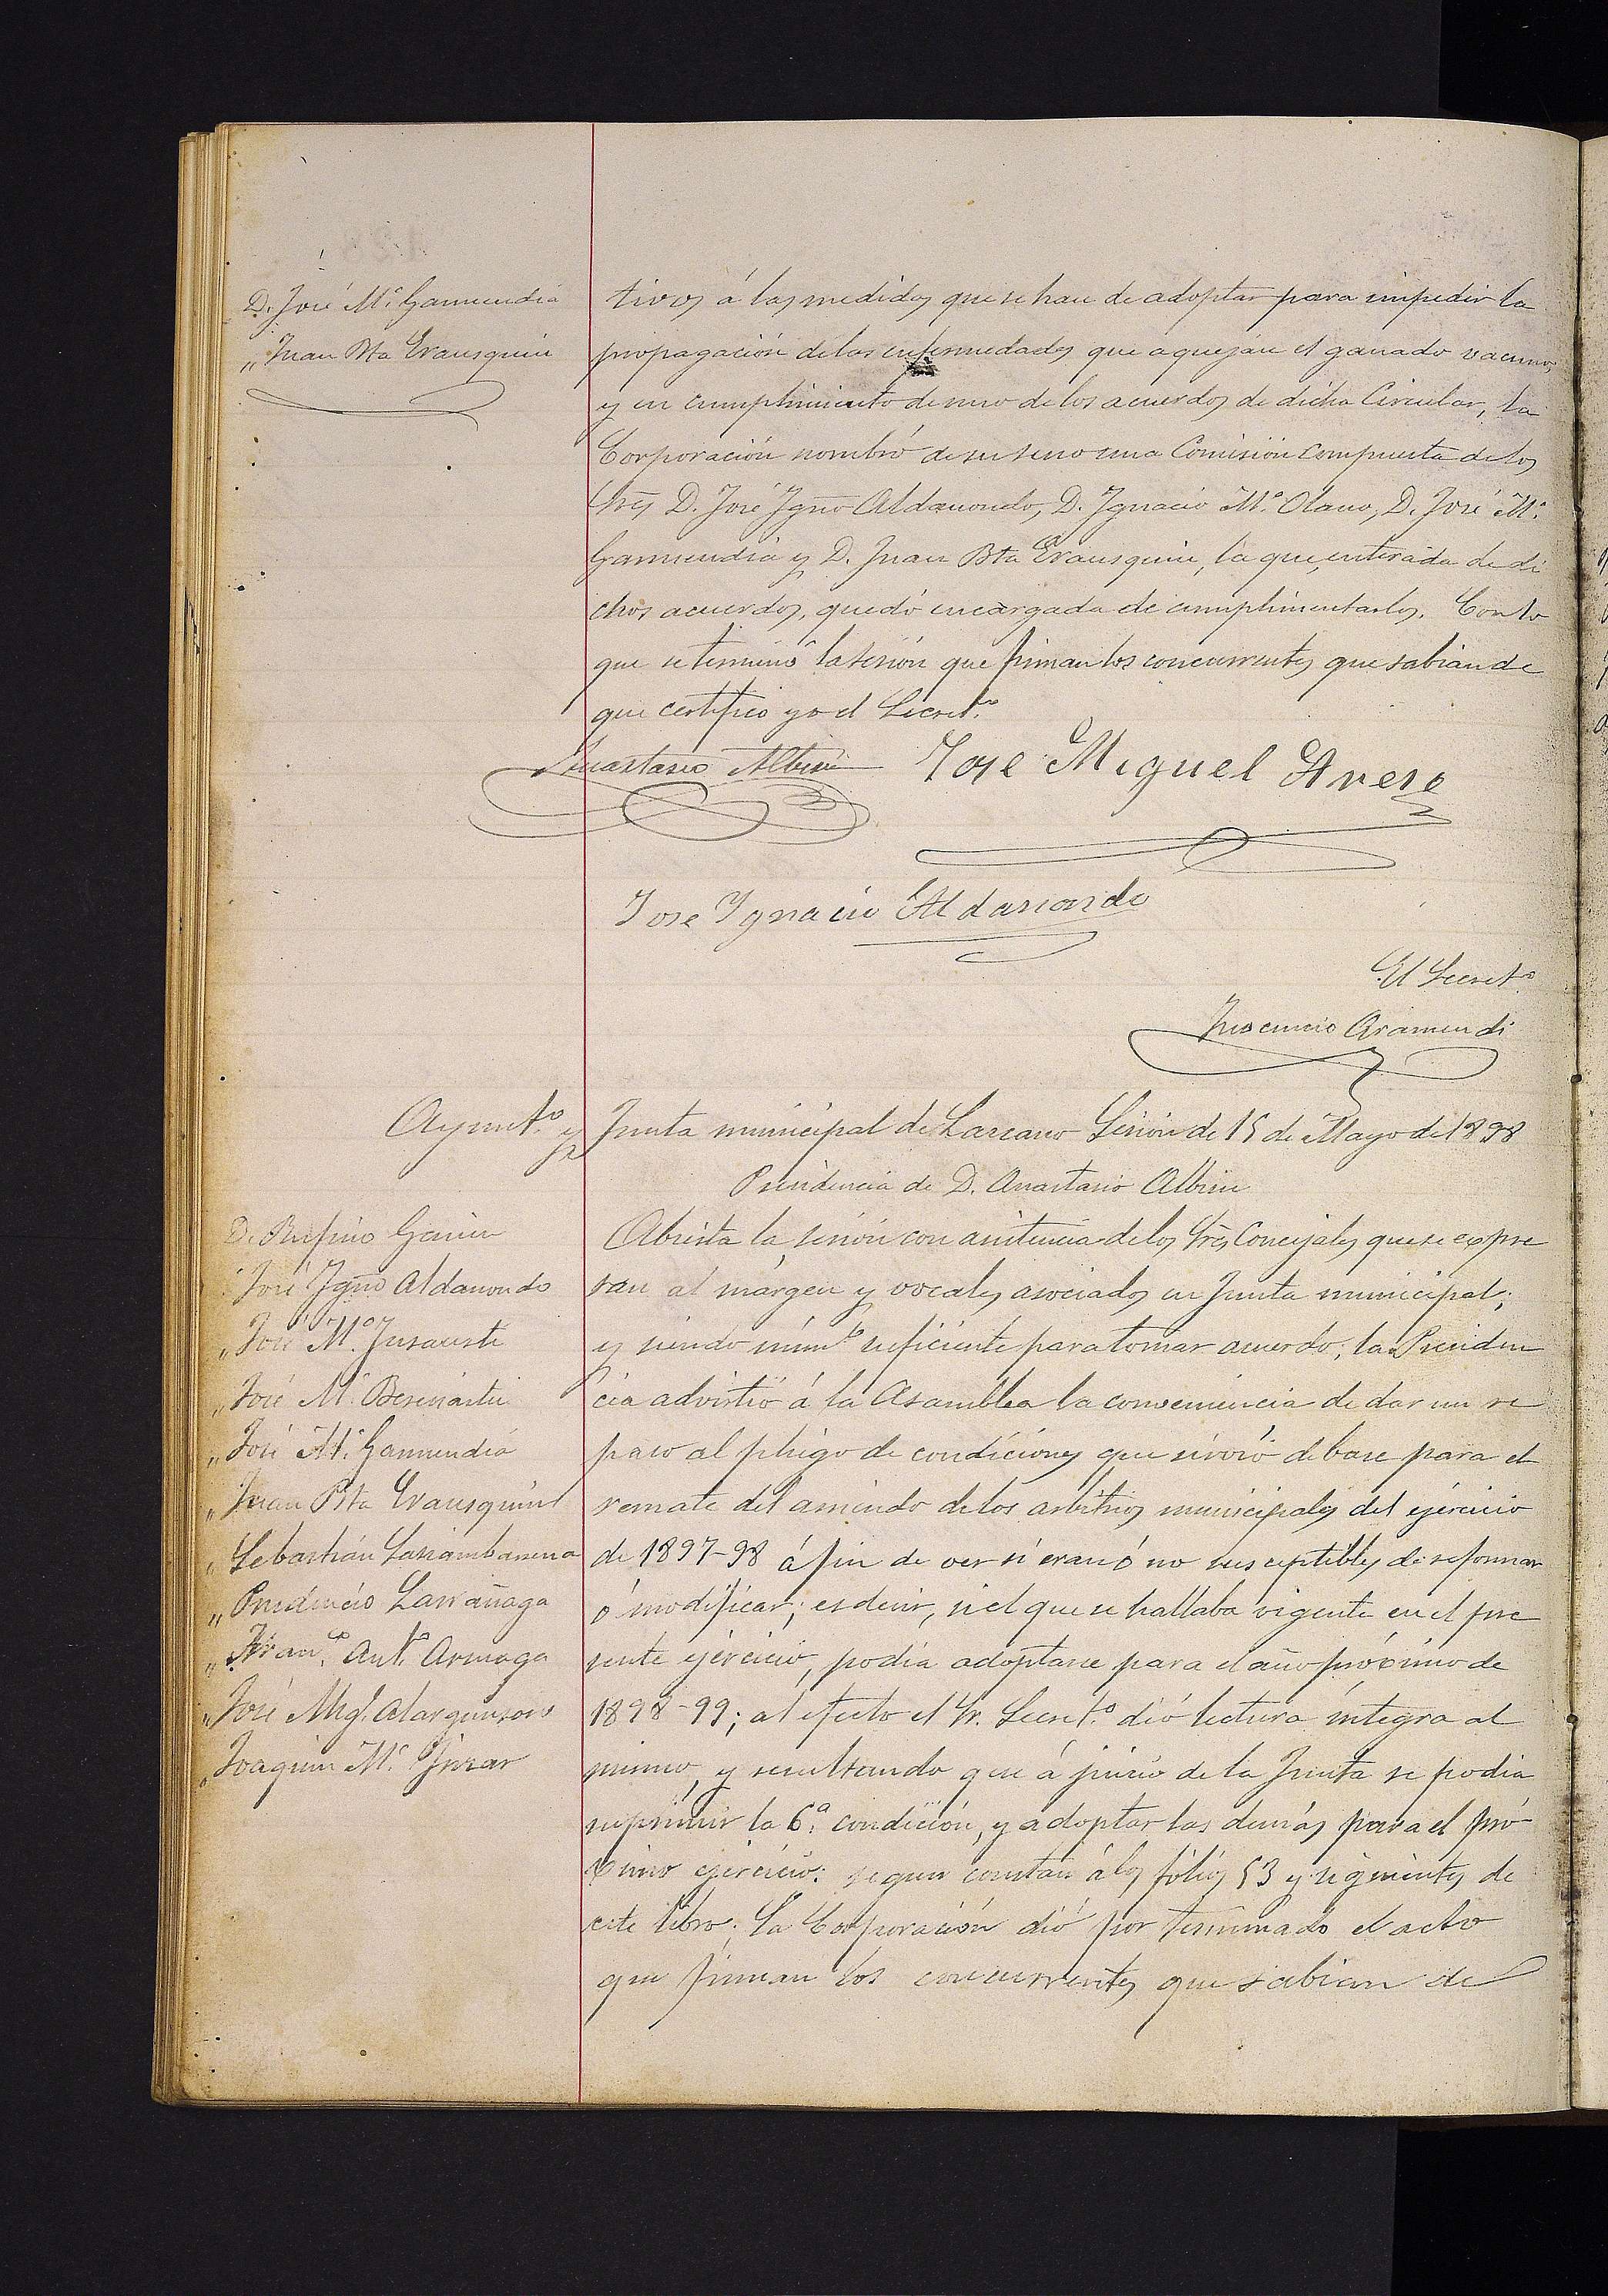 D. José M.ª Garmendia
„ Juan Bta Erausquin
tivos á las medidas que se han de adoptar para impedir la
propagación de las enfermedades que aquejan el ganado vacuno,
y en cumplimiento de uno de los acuerdos de dicha Circular, la
Corporación nombró de su seno una Comisión compuesta de los
Sres D. José Igno Aldanondo, D. Ignacio M.ª Olano, D. José M.ª
Garmendia y D. Juan Bta Erausquin, la que, enterada de di
chos acuerdos, quedó encargada de cumplimentarlos. Con lo
que se terminó la sesión que firman los concurrentes que sabian de
que certifico yo el Secret.º
Anastasio Albisu José Miguel
Jose Ignacio Aldanondo
El Secret.º
Inocencio Aramendi
Ayunt.º y Junta municipal de Lazcano Sesión de 15 de Mayo de 1898
Presidencia de D. Anastasio Albisu
D. Rufino Garin
„ José Igno Aldanondo
„ José M.ª Insausti
„ José M.ª
„ José M.ª Garmendia
„ Juan Bta Erausquin
„ Sebastián
„ Prudencio Larrañaga
„ Fran.co Ant.º
„ José Migl.
„ Joaquin M.ª
Abierta la sesión con asistencia de los Sres Concejales que se expre
san al márgen y vocales asociados en Junta municipal;
y siendo núm.º suficiente para tomar acuerdo; la Presiden
cia advirtió á la Asamblea la conveniencia de dar un re
paso al pliego de condiciones que sirvió de base para el
remate del arriendo de los arbitrios municipales del ejércicio
de 1897-98 á fin de ver si eran ó no susceptibles de reformar
ó modificar; es decir, si el que se hallaba vigente en el pre
sente ejércicio, podia adoptarse para el año próximo de
1898-99; al efecto el Sr. Secret.º dió lectura íntegra al
mismo, y resultando que á juicio de la Junta se podia
suprimir la 6.ª condición, y adoptar las demás para el pró
ximo ejercicio: segun constan á los fólios 53 y siguientes de
este libro; La Corporación dió por terminado el acto
que firman los concurrentes que sabian de